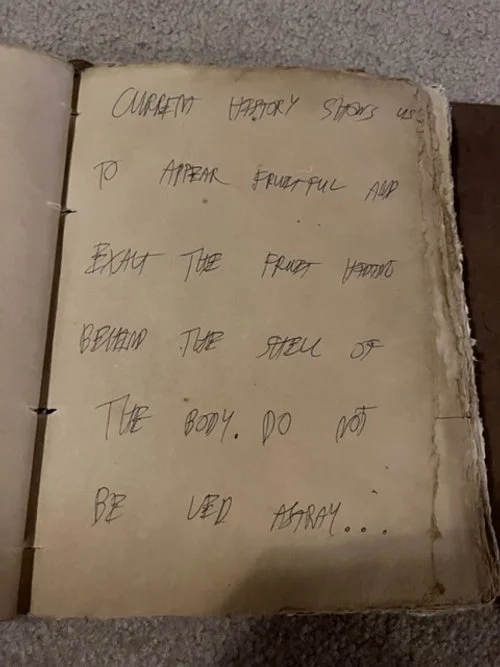 CURRENT HISTORY SHOWS US
TO APPEAR FRUITFUL AND
EXALT THE FRUIT HIDING
BEHIND THE SHELL OF
THE BODY. DO NOT
BE LED ASTRAY...